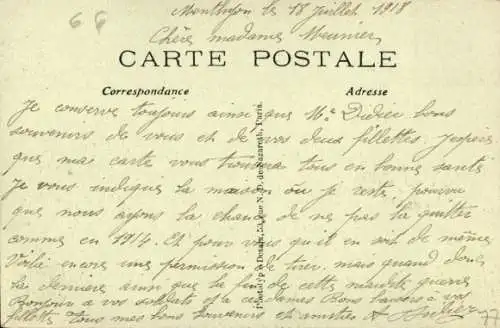 66
Monthyon le 18 Juillet 1918
Chère madame Meunier,
CARTE POSTALE
Correspondance
Adresse
Je conserve toujours ainsi que Me Didier bons
souvenirs de vous et de vos deux fillettes J'espère
que ma carte vous trouvera tous en bonne santé
Je vous indique la maison ou je reste, pourvu
que nous ayons la chance de ne pas la quitter
comme en 1914. Et pour vous qu'il en soit de même
Voilà encore une permission de tirer, mais quand donc
la dernière ainsi que la fin de cette maudite guerre
Bonjour a vos soldats et a ces dames Bons baisers à vos
fillettes Tous mes bons souvenirs et amitiés A
Phototypie Desaix, rue N.-D. de Nazareth, Paris.